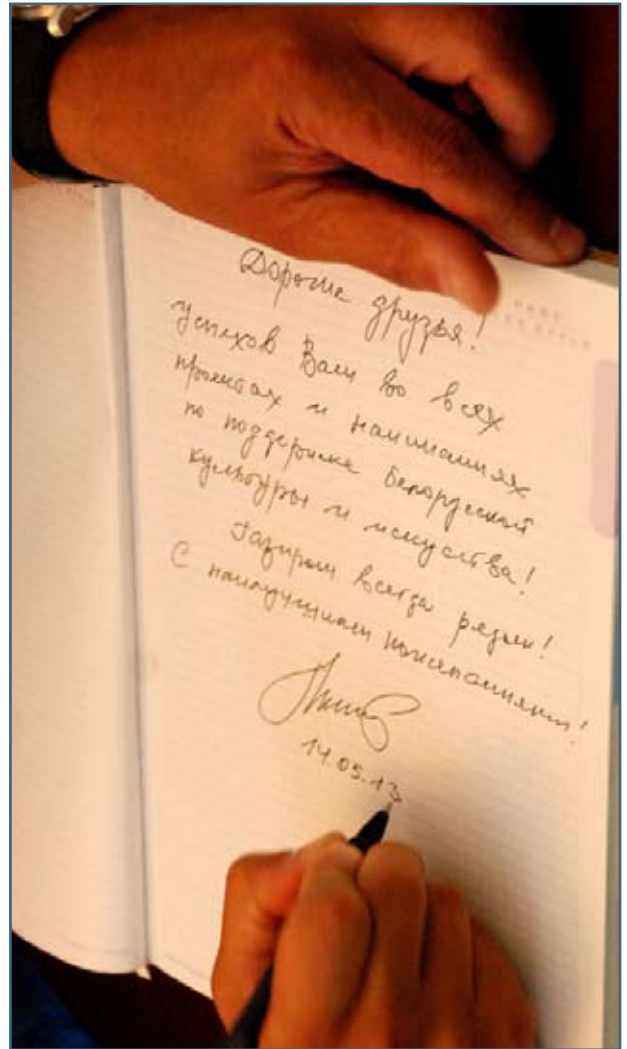 Дорогие друзья!
Успехов Вам во всех
проектах и начинаниях
по поддержке белорусской
культуры и искусства!
Газпром всегда рядом!
С наилучшими пожеланиями!
14.05.13